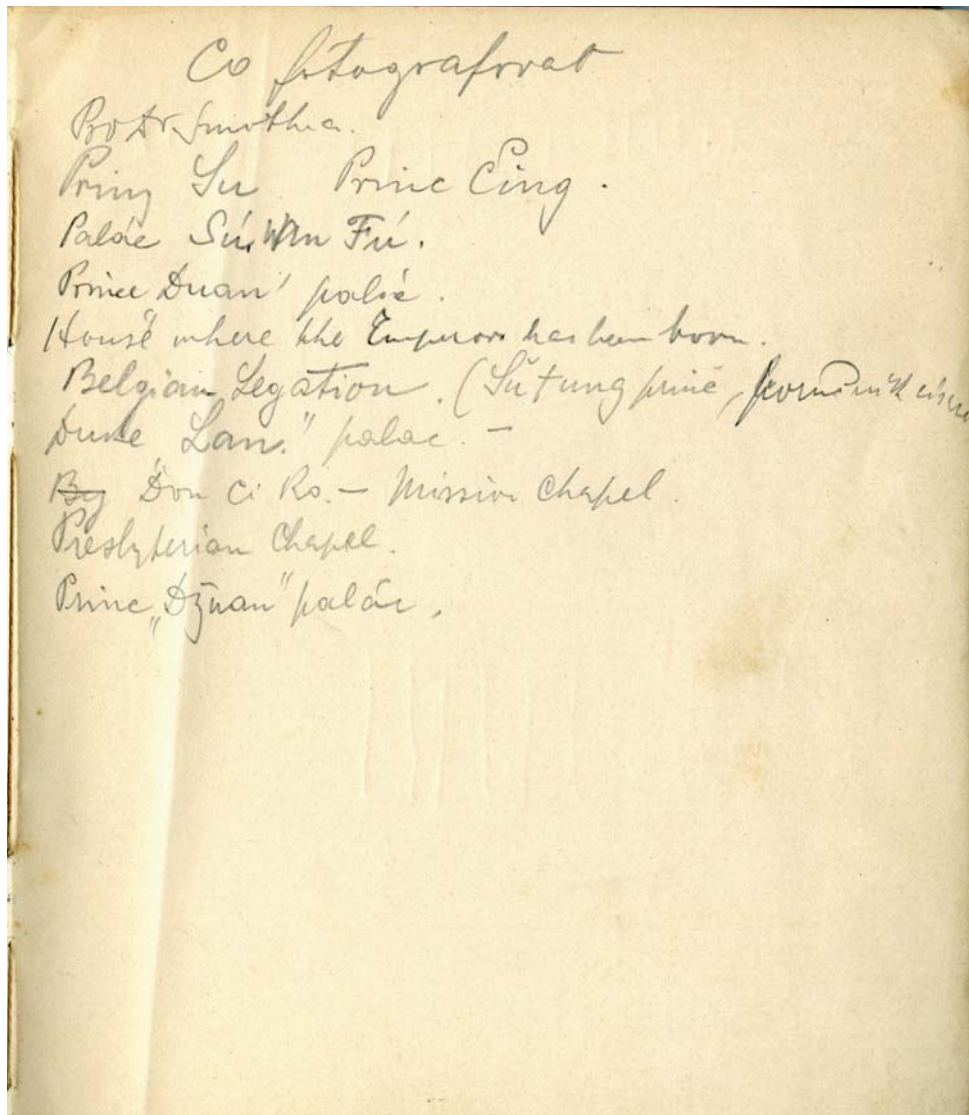 Co fotografovat
Pro Dr Smotha.
Prinz Su Princ Čing.
Palác Sú, Wan Fú.
Prince Duan' palác.
House where the Emperor has been born.
Belgian Legation. (Šu Tung princ, poručník císaře
Duke "Lan." palac. —
Don Ci Ro. — Mission Chapel.
Presbyterian Chapel.
Princ „Džuan" palác.